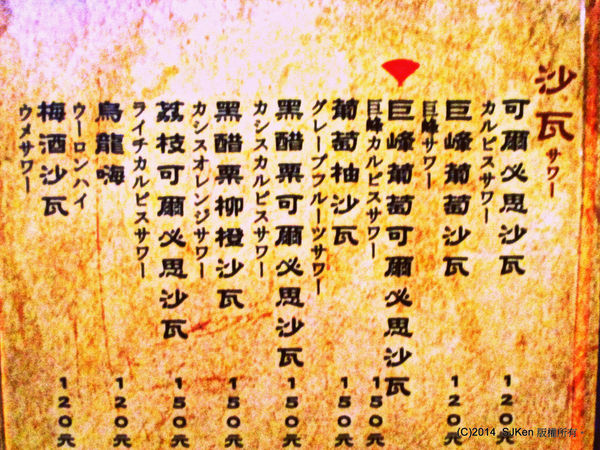 沙瓦 サワー
可爾必思沙瓦 120元
カルピスサワー
巨峰葡萄沙瓦 120元
巨峰サワー
巨峰葡萄可爾必思沙瓦 150元
巨峰カルピスサワー
葡萄柚沙瓦 150元
グレープフルーツサワー
黑醋栗可爾必思沙瓦 150元
カシスカルピスサワー
黑醋栗柳橙沙瓦 150元
カシスオレンジサワー
荔枝可爾必思沙瓦 150元
ライチカルピスサワー
烏龍嗨 120元
ウーロンハイ
梅酒沙瓦 120元
ウメサワー
(C)2014 SJKen 版權所有